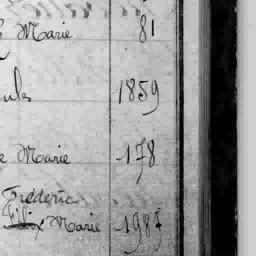 Marie 81
ules 1859
Marie 178
Frédéric
Félix Marie 1987